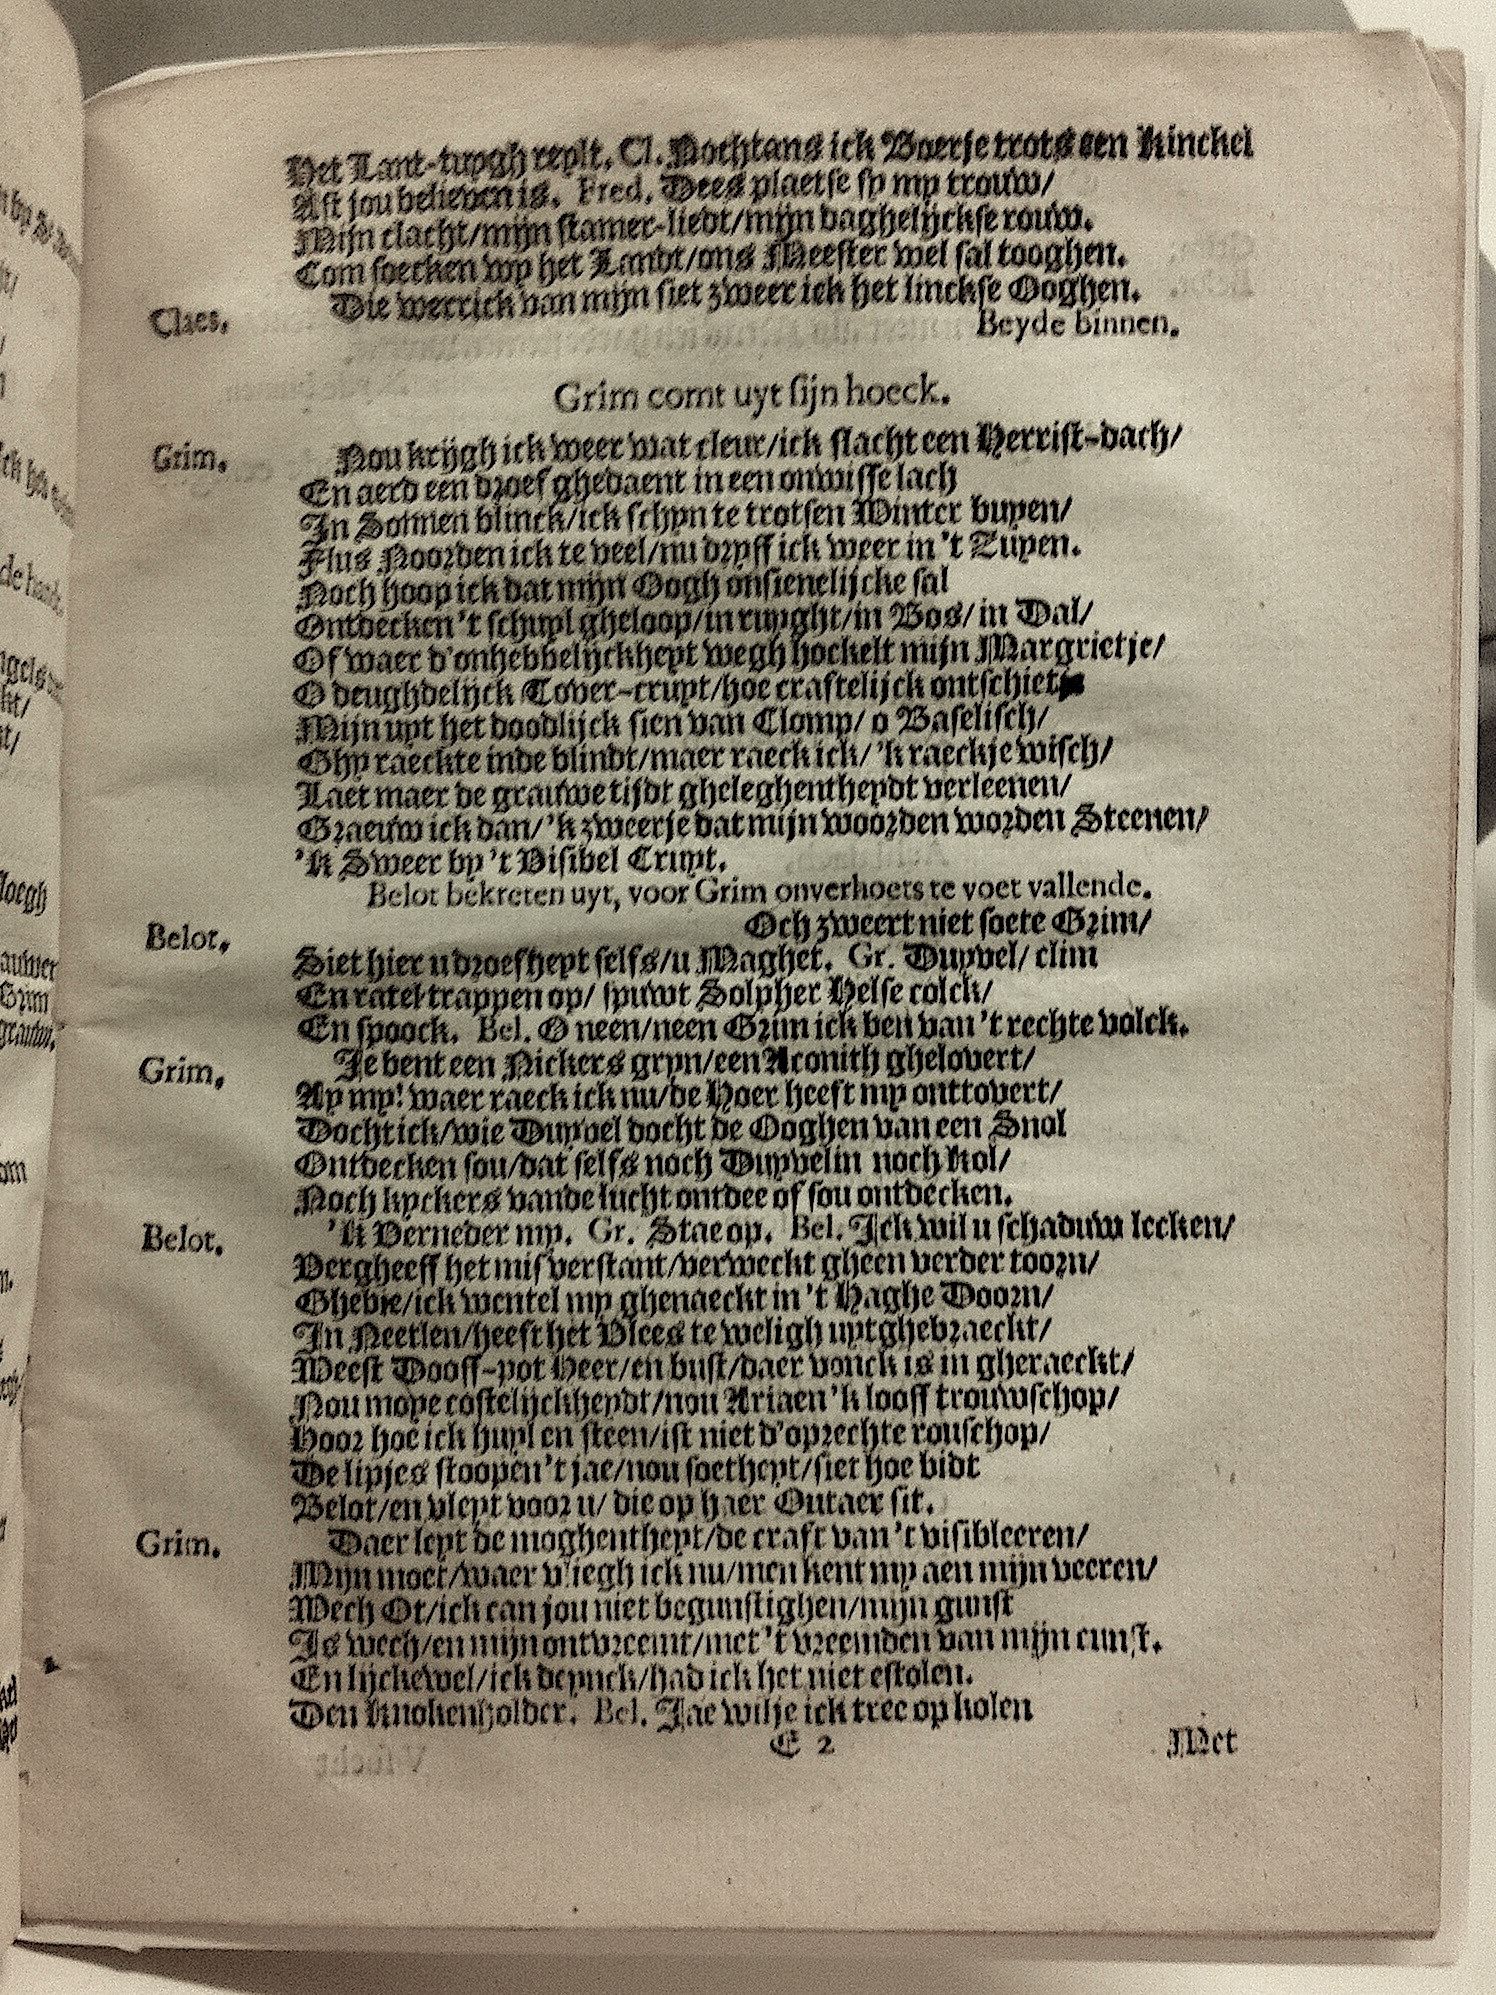 Het Lant-tuygh reylt. Cl. Nochtans ick Boerje trots een Kinckel
Alst jou believen is. Fred. Dees plaetse sy my trouw/
Mijn clacht/mijn stamer-liedt/mijn daghelijckse rouw.
Com soecken wy het Landt/ons Meester wel sal tooghen.
Claes. Die werrick van mijn siet zweer ick het linckse Ooghen.
Beyde binnen.
Grim comt uyt sijn hoeck.
Grim. Nou krijgh ick weer wat cleur/ick slacht een Herrist-dach/
En aerd een droef ghedaent in een onwisse lach
In Sonnen blinck/ick schyn te trotsen Winter buyen/
Flus Noorden ick te veel/nu dryff ick weer in 't Zuyen.
Noch hoop ick dat mijn Oogh onsienelijcke sal
Ontdecken 't schuyl gheloop/in ruyght/in Bos/in Dal/
Of waer d'onhebbelijckheyt wegh hockelt mijn Margrietje/
O deughdelijck Tover-cruyt/hoe craftelijck ontschietje
Mijn uyt het doodlijck sien van Clomp/o Baselisch/
Ghy raeckte inde blindt/maer raeck ick/'k raeckje wisch/
Laet maer de grauwe tijdt gheleghentheydt verleenen/
Graeuw ick dan/'k zweerje dat mijn woorden worden Steenen/
'k Sweer by 't Visibel Cruyt.
Belot bekreten uyt, voor Grim onverhoets te voet vallende.
Belot. Och zweert niet soete Grim/
Siet hier u droefheyt selfs/u Maghet. Gr. Duyvel/clim
En ratel trappen op/spuwt Solpher Helse colck/
En spoock. Bel. O neen/neen Grim ick ben van 't rechte volck.
Grim. Je bent een Nickers gryn/een Aconith ghelovert/
Ay my! waer raeck ick nu/de Hoer heeft my onttovert/
Docht ick/wie Duyvel docht de Ooghen van een Snol
Ontdecken sou/dat selfs noch Duyvelin noch Kol/
Noch kyckers vande lucht ontdee of sou ontdecken.
Belot. 'k Verneder my. Gr. Stae op. Bel. Ick wil u schaduw lecken/
Vergheeff het misverstant/verweckt gheen verder toorn/
Ghebie/ick wentel my ghenaeckt in 't Haghe Doorn/
In Neetlen/heeft het Vlees te weligh uytghebraeckt/
Meest Dooff-pot Heer/en bust/daer vonck is in gheraeckt/
Nou moye costelijckheydt/nou Ariaen 'k looff trouwschop/
Hoor hoe ick huyl en steen/ist niet d'oprechte rouschop/
De lipjes stoopen 't jae/nou soetheyt/siet hoe bidt
Belot/en vleyt voor u/die op haer Outaer sit.
Grim. Daer leyt de moghentheyt/de craft van 't visibleeren/
Mijn moer/waer vliegh ick nu/men kent my aen mijn veeren/
Wech Ot/ick can jou niet begunstighen/mijn gunst
Is wech/en mijn ontvreemt/met 't vreemden van mijn cunst.
En lijckewel/ick deynck/had ick het niet estolen.
Den Knokenholder. Bel. Jae wilje ick tree op kolen
E 2 Met